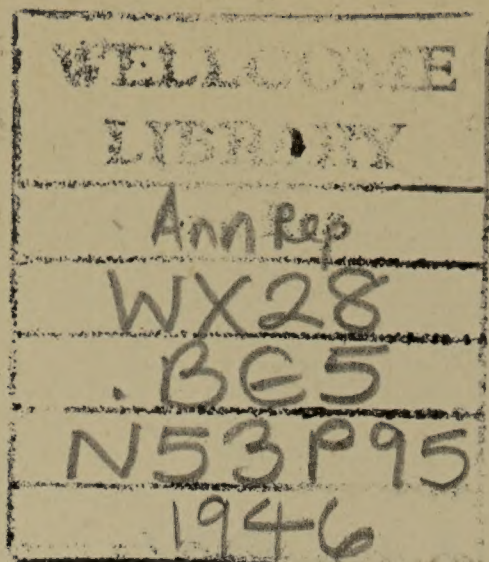 WELLCOME
LIBRARY
Ann Rep
WX28
.BE5
N53P95
1946